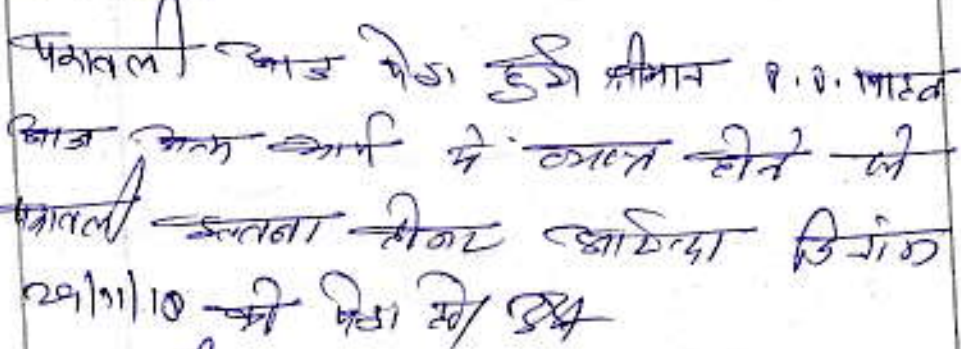 पत्रावली आज पेश हुई श्रीमान P.O. साहब
आज अन्य कार्य में व्यस्त होने से
पत्रावली इत्तला होकर आईन्दा दिनांक
29/11/18 को पेश हो/